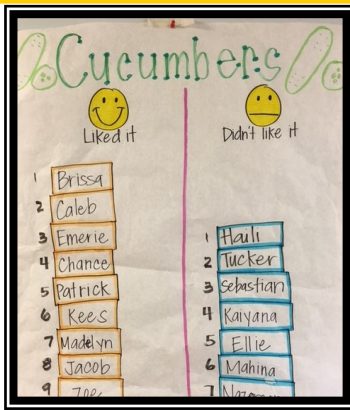 Cucumbers
Liked it
1 Brissa
2 Caleb
3 Emerie
4 Chance
5 Patrick
6 Kees
7 Madelyn
8 Jacob
9 Zoe
Didn't like it
1 Haili
2 Tucker
3 Sebastian
4 Kaiyana
5 Ellie
6 Mahina
7